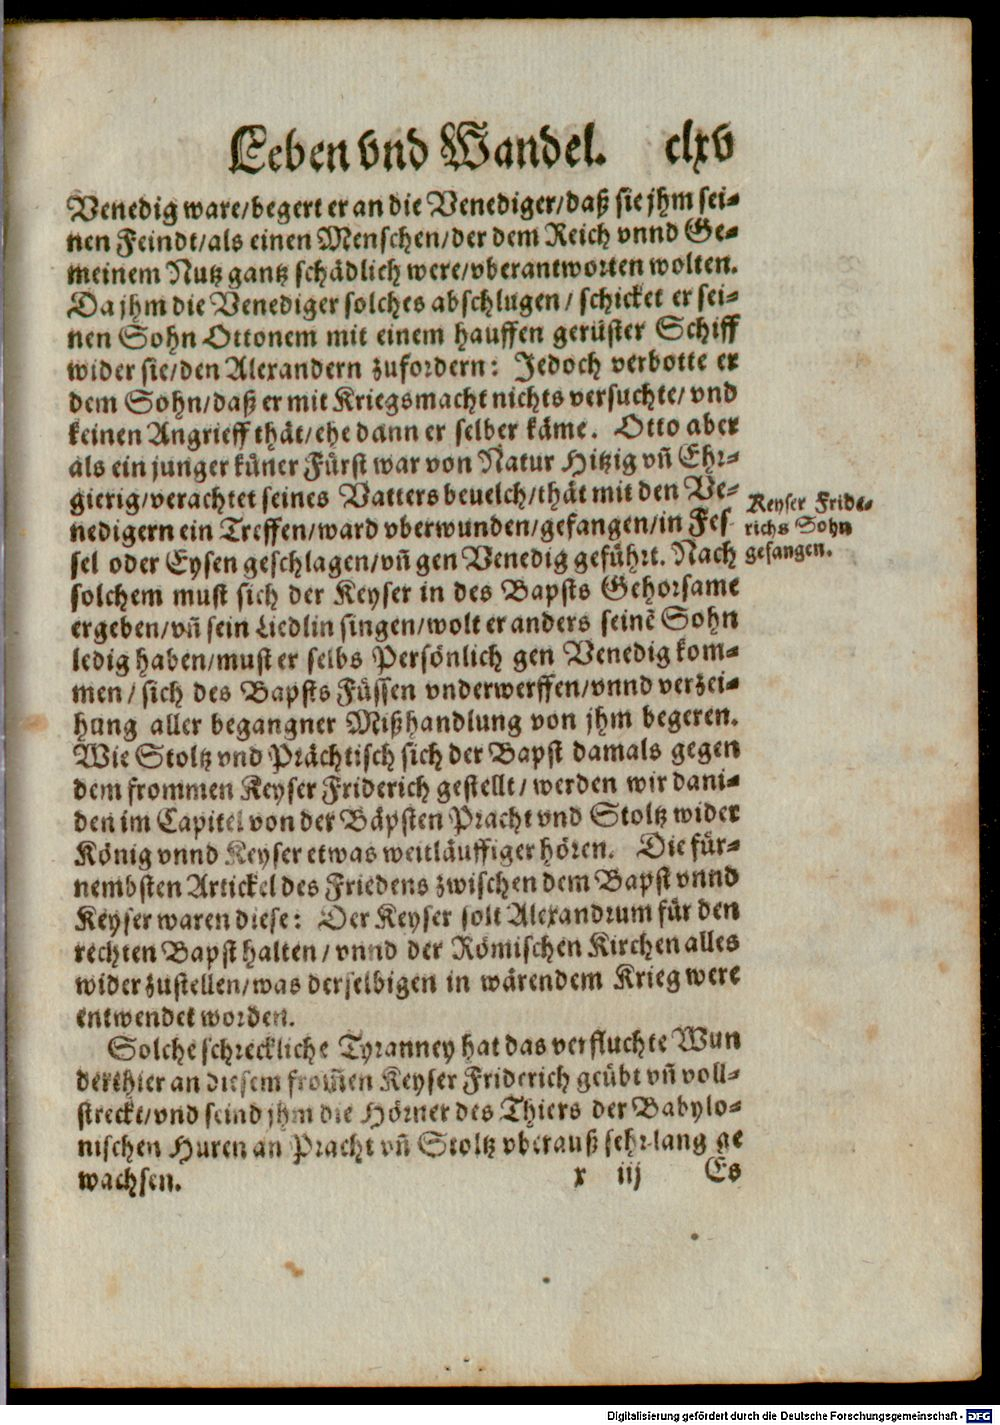 Leben vnd Wandel. clxv
Venedig ware/begert er an die Venediger/daß sie jhm sei-
nen Feindt/als einen Menschen/der dem Reich vnnd Ge-
meinem Nutz gantz schädlich were/vberantworten wolten.
Da jhm die Venediger solches abschlugen/ schicket er sei-
nen Sohn Ottonem mit einem hauffen gerüster Schiff
wider sie/den Alexandern zufordern: Jedoch verbotte er
dem Sohn/daß er mit Kriegsmacht nichts versuchte/ vnd
keinen Angrieff thät/ehe dann er selber käme. Otto aber
als ein junger küner Fürst war von Natur Hitzig vñ Ehr-
gierig/verachtet seines Vatters beuelch/thät mit den Ve-
nedigern ein Treffen/ward vberwunden/gefangen/in Fes
sel oder Eysen geschlagen/vñ gen Venedig geführt. Nach
solchem must sich der Keyser in des Bapsts Gehorsame
ergeben/vñ sein Liedlin singen/wolt er anders seinẽ Sohn
ledig haben/must er selbs Persönlich gen Venedig kom-
men/ sich des Bapsts Füssen vnderwerffen/vnnd verzei-
hung aller begangner Mißhandlung von jhm begeren.
Wie Stoltz vnd Prächtisch sich der Bapst damals gegen
dem frommen Keyser Friderich gestellt/ werden wir dani-
den im Capitel von der Bäpsten Pracht vnd Stoltz wider
König vnnd Keyser etwas weitläuffiger hören. Die für-
nembsten Artickel des Friedens zwischen dem Bapst vnnd
Keyser waren diese: Der Keyser solt Alexandrum für den
rechten Bapst halten/ vnnd der Römischen Kirchen alles
wider zustellen/was derselbigen in wärendem Krieg were
entwendet worden.
Solche schreckliche Tyranney hat das verfluchte Wun
derthier an diesem from̃en Keyser Friderich geübt vñ voll-
streckt/vnd seind jhm die Hörner des Thiers der Babylo-
nischen Huren an Pracht vñ Stoltz vberauß sehr lang ge
wachsen.
x iij Es
Keyser Fride-
richs Sohn
gefangen.
Digitalisierung gefördert durch die Deutsche Forschungsgemeinschaft - DFG